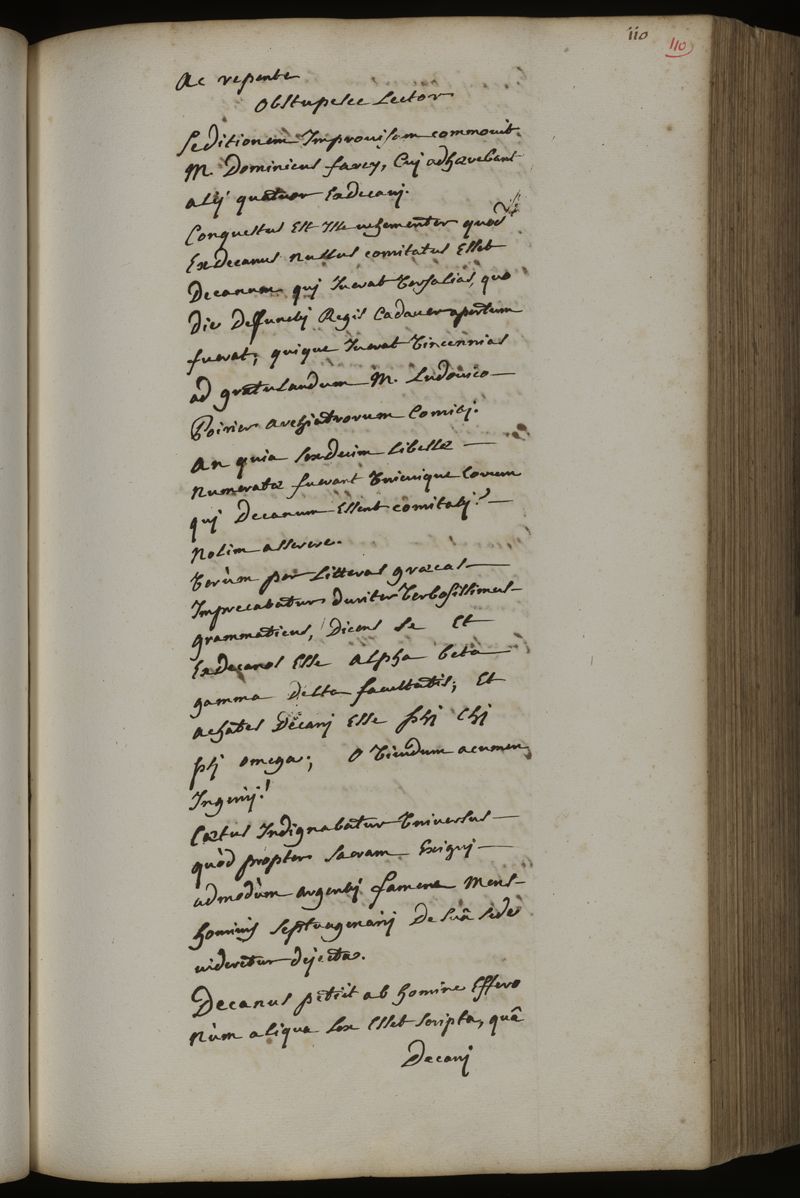 110
110
Ac repente
Obstupesce Lector
Seditionem Improuisam commouit
M. Dominicus farcy, Cuj adhærebant
alij quatuor Exdecanj.
Conquestus Est Ille uehementer quod
Exdecanus nullus comitatus Esset
Decanum quj Iuerat Versalias, quo
die Deffunctj Regis Cadauer apertum
fuerat, quique Iuerat Vincennias
ad gratulandum M. Ludouico
Poirier archiatrorum Comitj.
An quia sexdecim Libellæ
numeratæ fuerant Vnicuique Eorum
quj Decanum Essent comitatj?
nolim asserere.
Verùm per Litteras græcas
Imprecabatur duriter Verbosissimus
grammaticus, Dicens se Et
Exdecanos Esse Alpha beta
gamma delta facultatis; Et
achates Decanj Esse phj chj
psj omega; O Viuidum acumen
Ingenij!
Cœtus Indignabatur Vniuersus
quòd propter sacram Exiguj
admodùm argentj famem Mens
hominis septuagenarij De suâ sede
uideretur dejecta.
Decanus petiit ab homine Effero
nùm aliqua Lex Esset scripta, quâ
Decanj